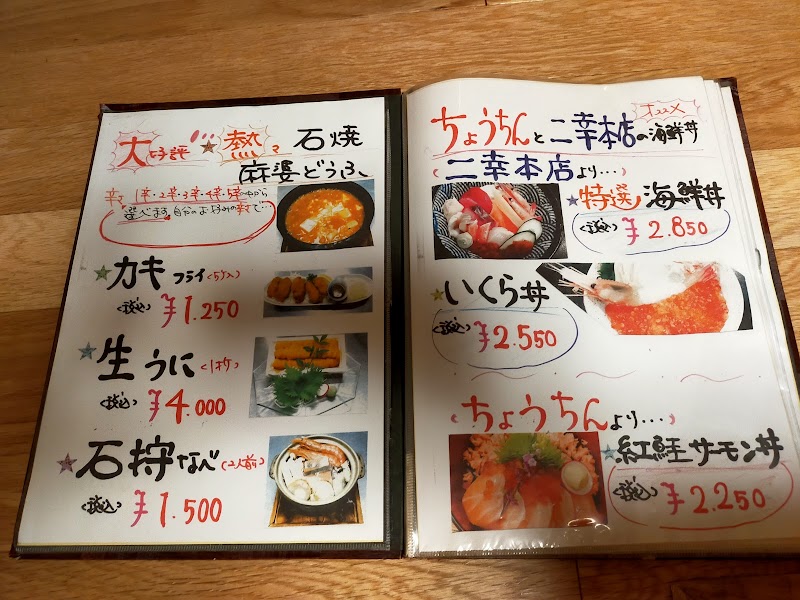 大好評 ★ 熱々 石焼
麻婆どうふ
辛さ 1辛・2辛・3辛・4辛・5辛の中から
選べます。自分のお好みの辛さで…
★カキフライ(5ケ入)
(税込) ¥1.250
★生うに(1枚)
(税込) ¥4.000
★石狩なべ(2人前)
(税込) ¥1.500
オススメ
ちょうちんと二幸本店の海鮮丼
(二幸本店より…)
★特選 海鮮丼
(税込) ¥2.850
★いくら丼
(税込) ¥2.550
(ちょうちんより…)
★紅鮭サーモン丼
(税込) ¥2.250